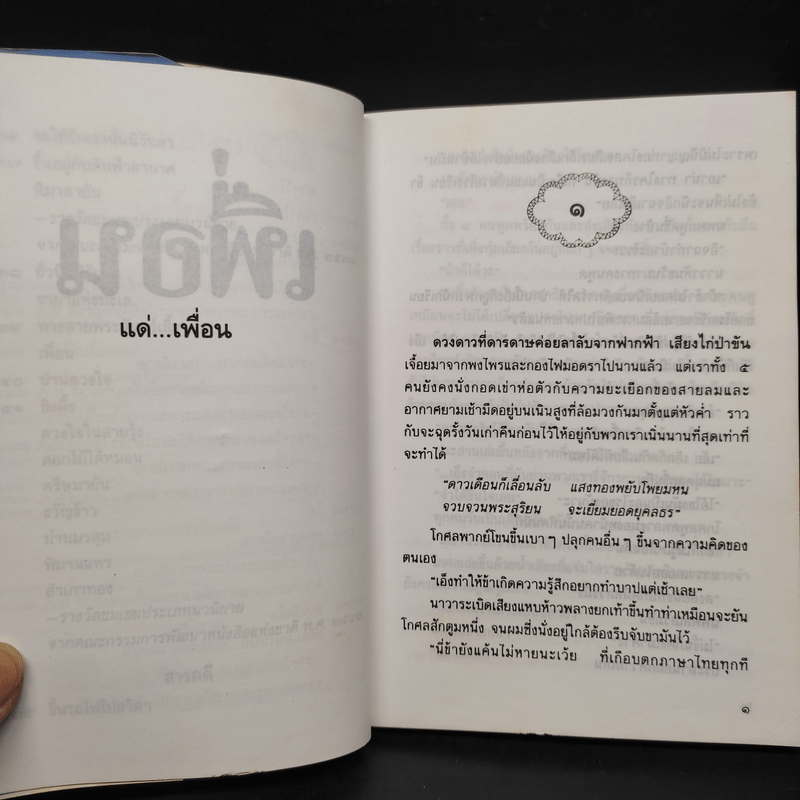 แด่...เพื่อน
๑
ดวงดาวที่ดารดาษค่อยลาลับจากฟากฟ้า เสียงไก่ป่าขัน
เจื้อยมาจากพงไพรและกองไฟมอดราไปนานแล้ว แต่เราทั้ง ๕
คนยังคงนั่งกอดเข่าห่อตัวกับความยะเยือกของสายลมและ
อากาศยามเช้ามืดอยู่บนเนินสูงที่ล้อมวงกันมาตั้งแต่หัวค่ำ ราว
กับจะฉุดรั้งวันเก่าคืนก่อนไว้ให้อยู่กับพวกเราเนิ่นนานที่สุดเท่าที่
จะทำได้
"ดาวเดือนก็เลื่อนลับ แสงทองพยับโพยมหน
จวบจวนพระสุริยน จะเยี่ยมยอดยุคลธร"
โกศลพากย์โขนขึ้นเบา ๆ ปลุกคนอื่น ๆ ขึ้นจากความคิดของ
ตนเอง
"เอ็งทำให้ข้าเกิดความรู้สึกอยากทำบาปแต่เช้าเลย"
นาวาระเบิดเสียงแหบห้าวพลางยกเท้าขึ้นทำท่าเหมือนจะยัน
โกศลสักตูมหนึ่ง จนผมซึ่งนั่งอยู่ใกล้ต้องรีบจับขามันไว้
"นี่ข้ายังแค้นไม่หายนะเว้ย ที่เกือบตกภาษาไทยทุกที
๑